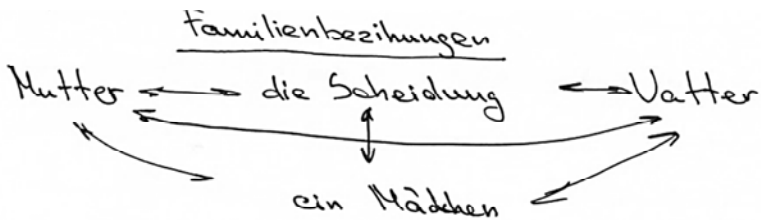 Familienbezihungen
Mutter die Scheidung Vatter
ein Mädchen